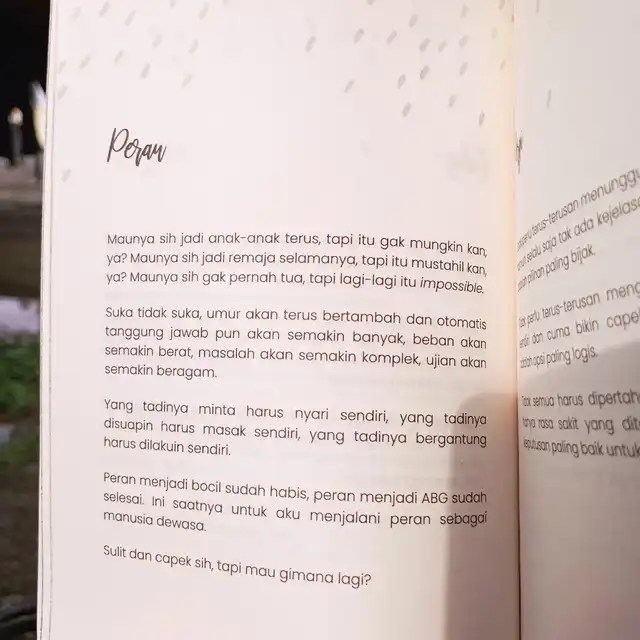 Peran
Maunya sih jadi anak-anak terus, tapi itu gak mungkin kan,
ya? Maunya sih jadi remaja selamanya, tapi itu mustahil kan,
ya? Maunya sih gak pernah tua, tapi lagi-lagi itu impossible.
Suka tidak suka, umur akan terus bertambah dan otomatis
tanggung jawab pun akan semakin banyak, beban akan
semakin berat, masalah akan semakin komplek, ujian akan
semakin beragam.
Yang tadinya minta harus nyari sendiri, yang tadinya
disuapin harus masak sendiri, yang tadinya bergantung
harus dilakuin sendiri.
Peran menjadi bocil sudah habis, peran menjadi ABG sudah
selesai. Ini saatnya untuk aku menjalani peran sebagai
manusia dewasa.
Sulit dan capek sih, tapi mau gimana lagi?
terus-terusan menunggu
selalu saja tak ada kejelasa
pilihan paling bijak.
perlu terus-terusan meng
dan cuma bikin capek
opsi paling logis.
Tidak semua harus dipertah
rasa sakit yang dit
keputusan paling baik untuk